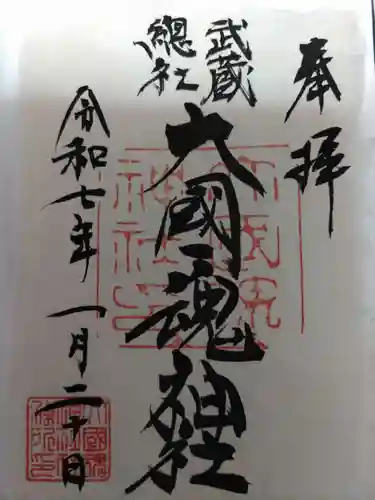 奉拝
武蔵
總社
大國魂神社
令和七年一月二十日